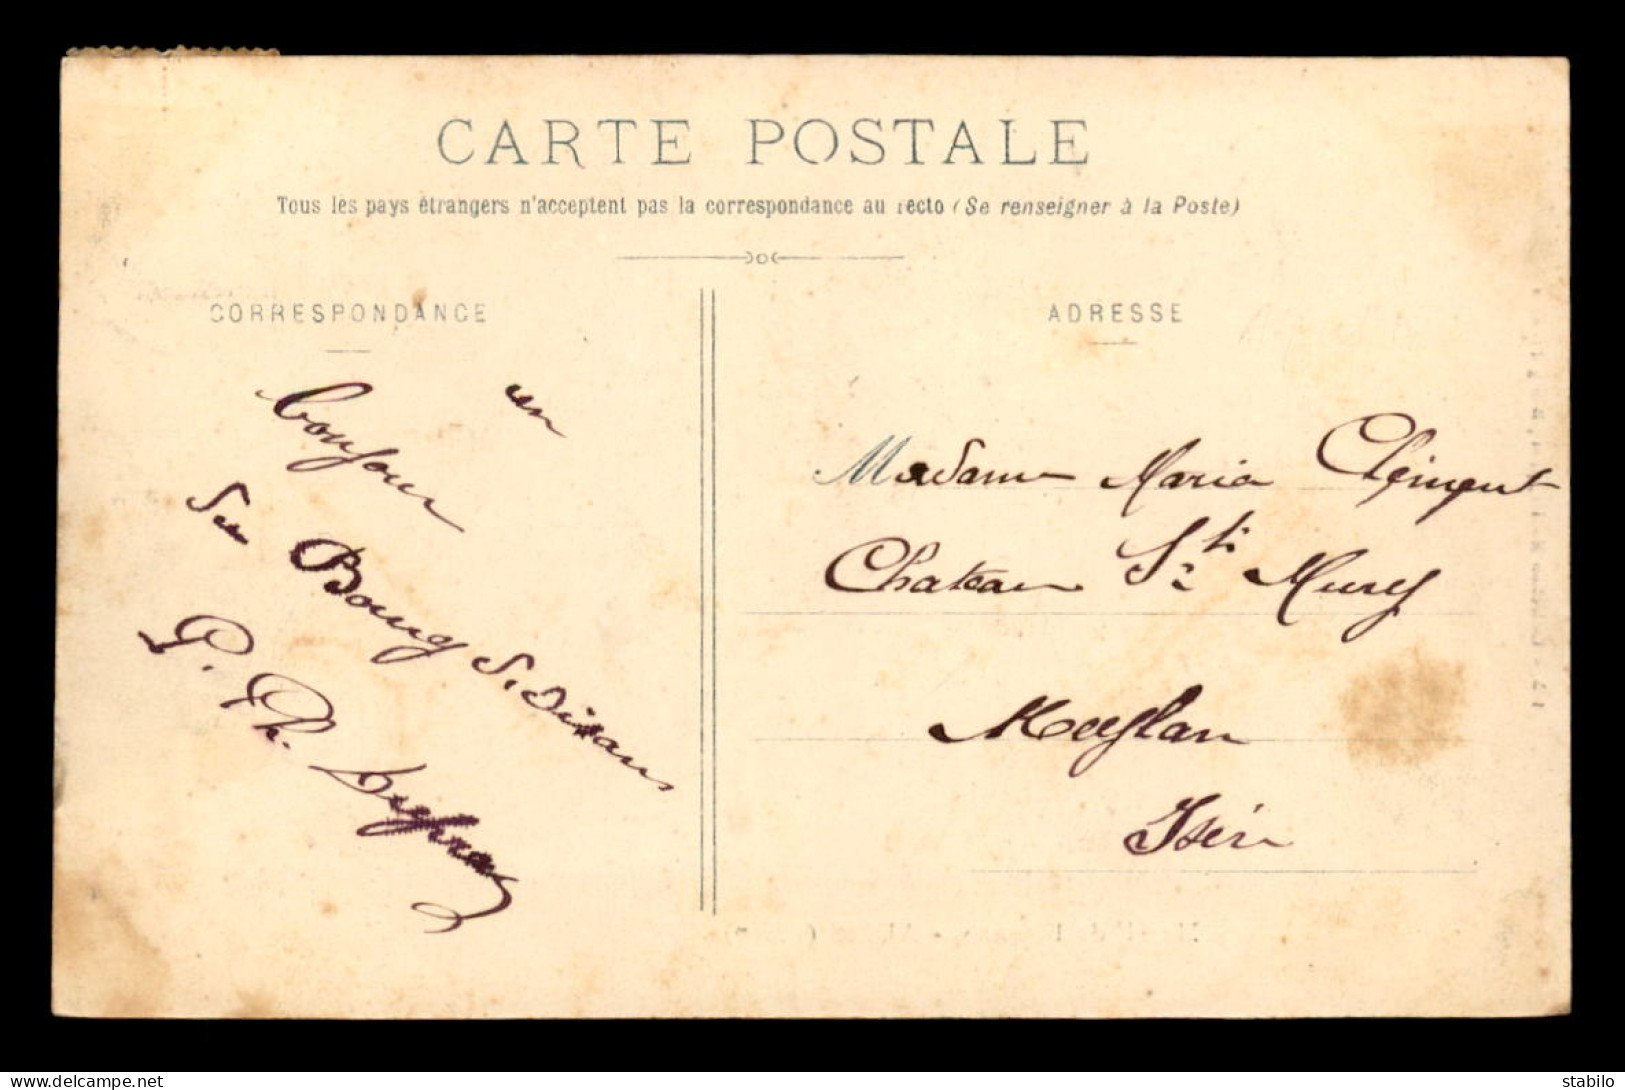 CARTE POSTALE
Tous les pays étrangers n'acceptent pas la correspondance au recto (Se renseigner à la Poste)
CORRESPONDANCE
ADRESSE
un
bonjour
du Bourg d'Oisans
P. Ph.
Madame Maria Clément
Chateau St Mury
Meylan
Isère
delcampe.net
stabilo